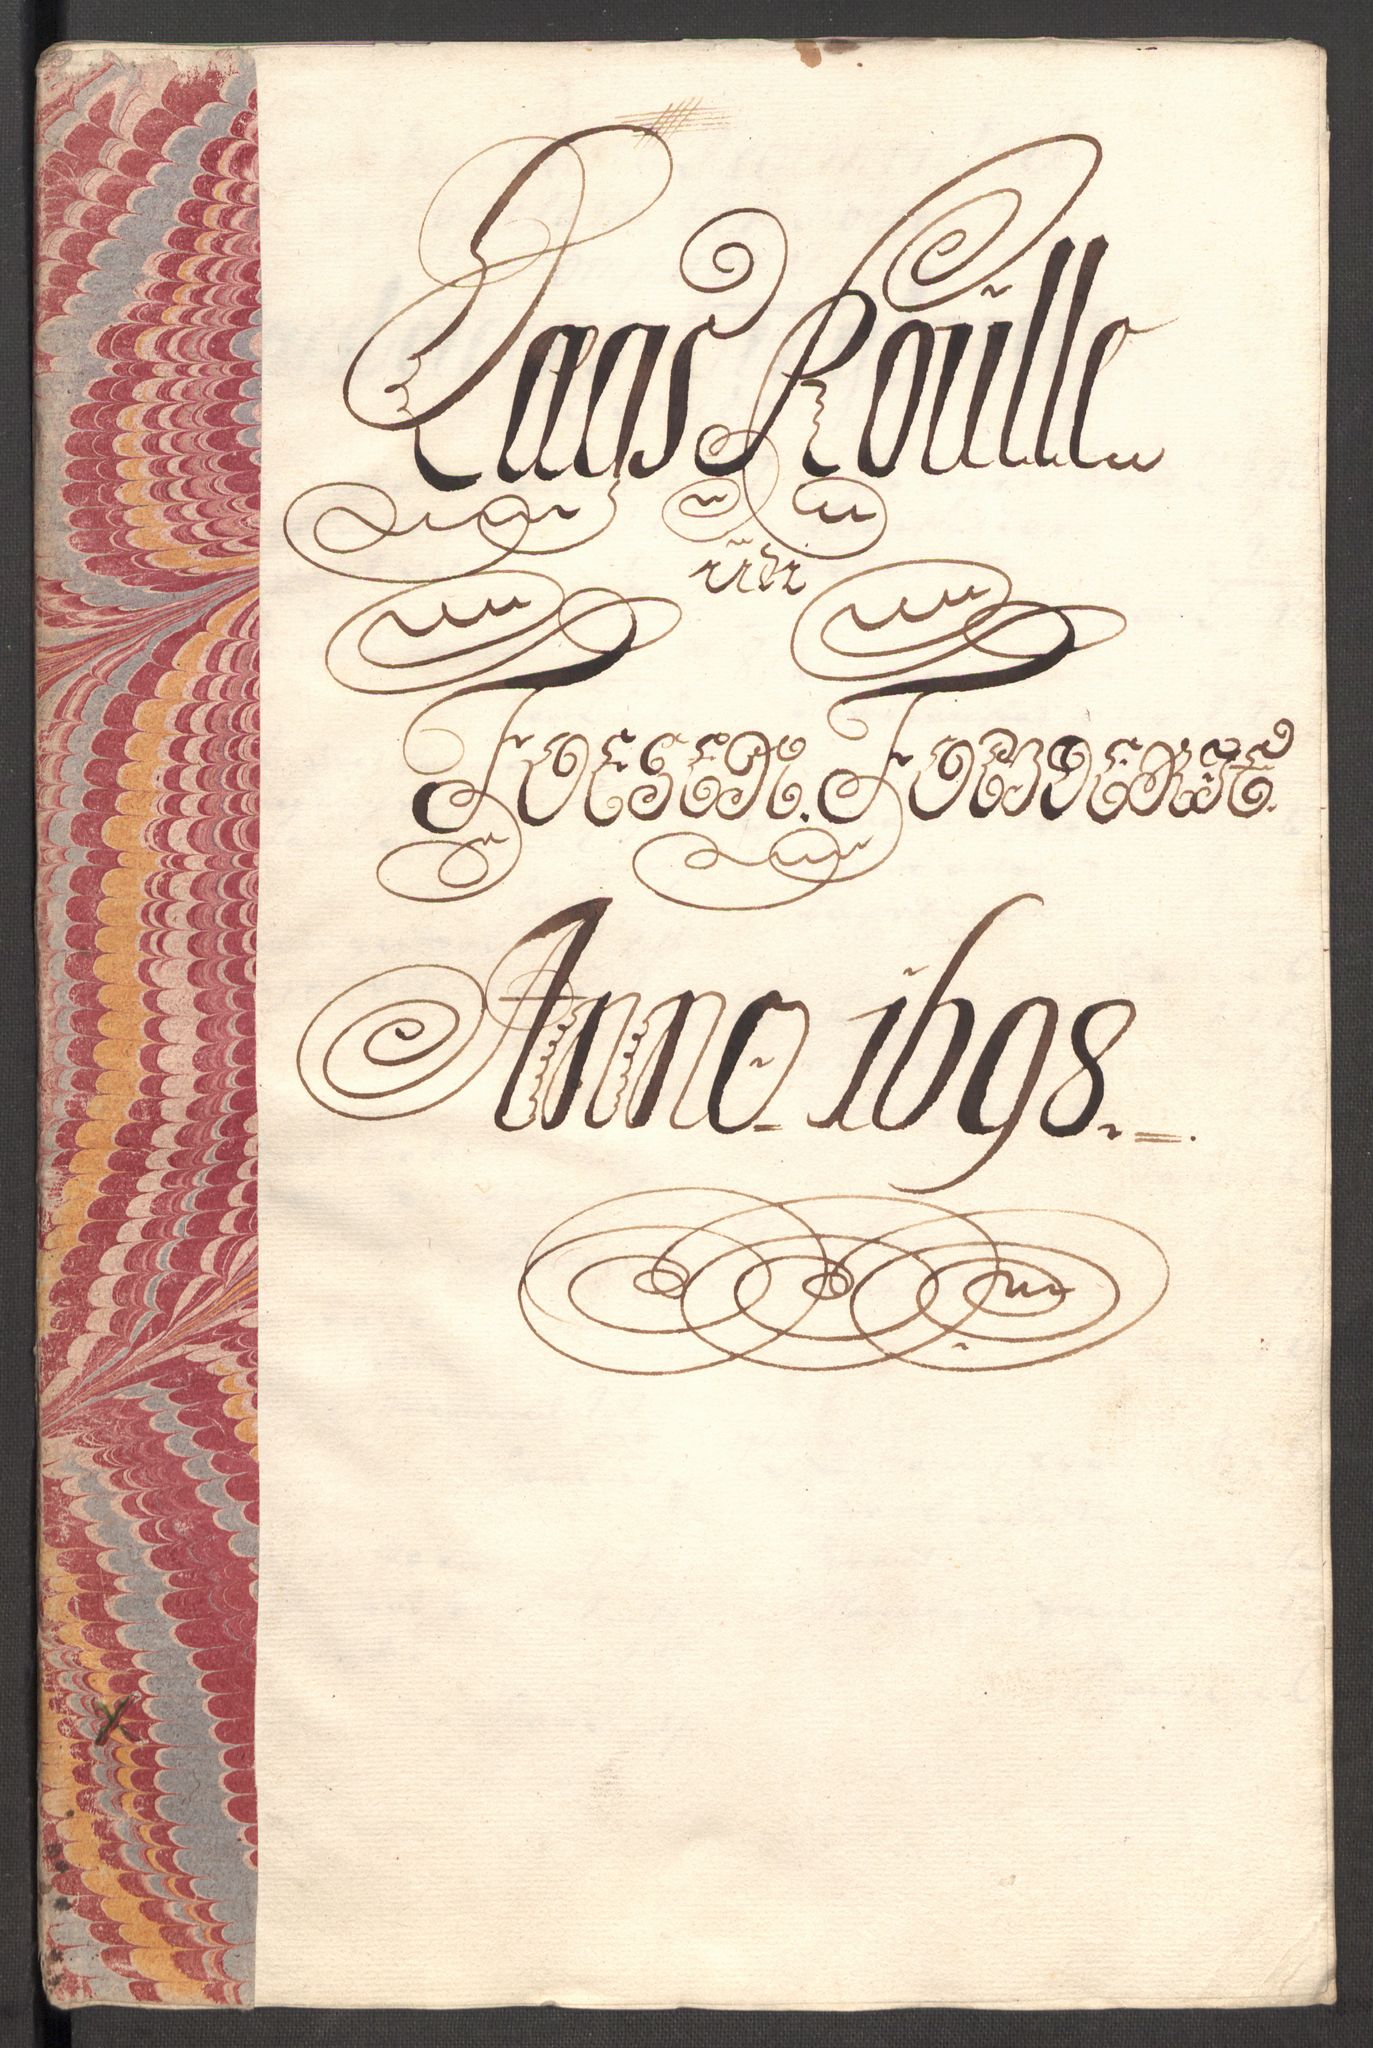 Laas Roülle
üdi
Foesen. Fougderie.
Anno 1698.